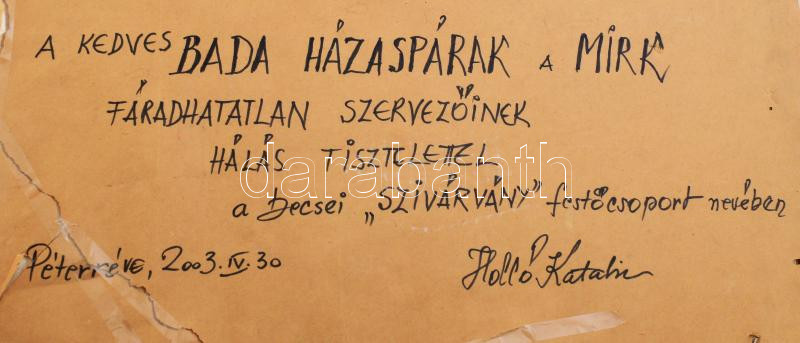 A KEDVES BADA HÁZASPÁRAK A MIRK
FÁRADHATATLAN SZERVEZŐINEK
HÁLÁS TISZTELETTEL
a becsei „SZIVÁRVÁNY" festőcsoport nevében
Péterréve, 2003.IV.30
Holló Katalin
darabanth